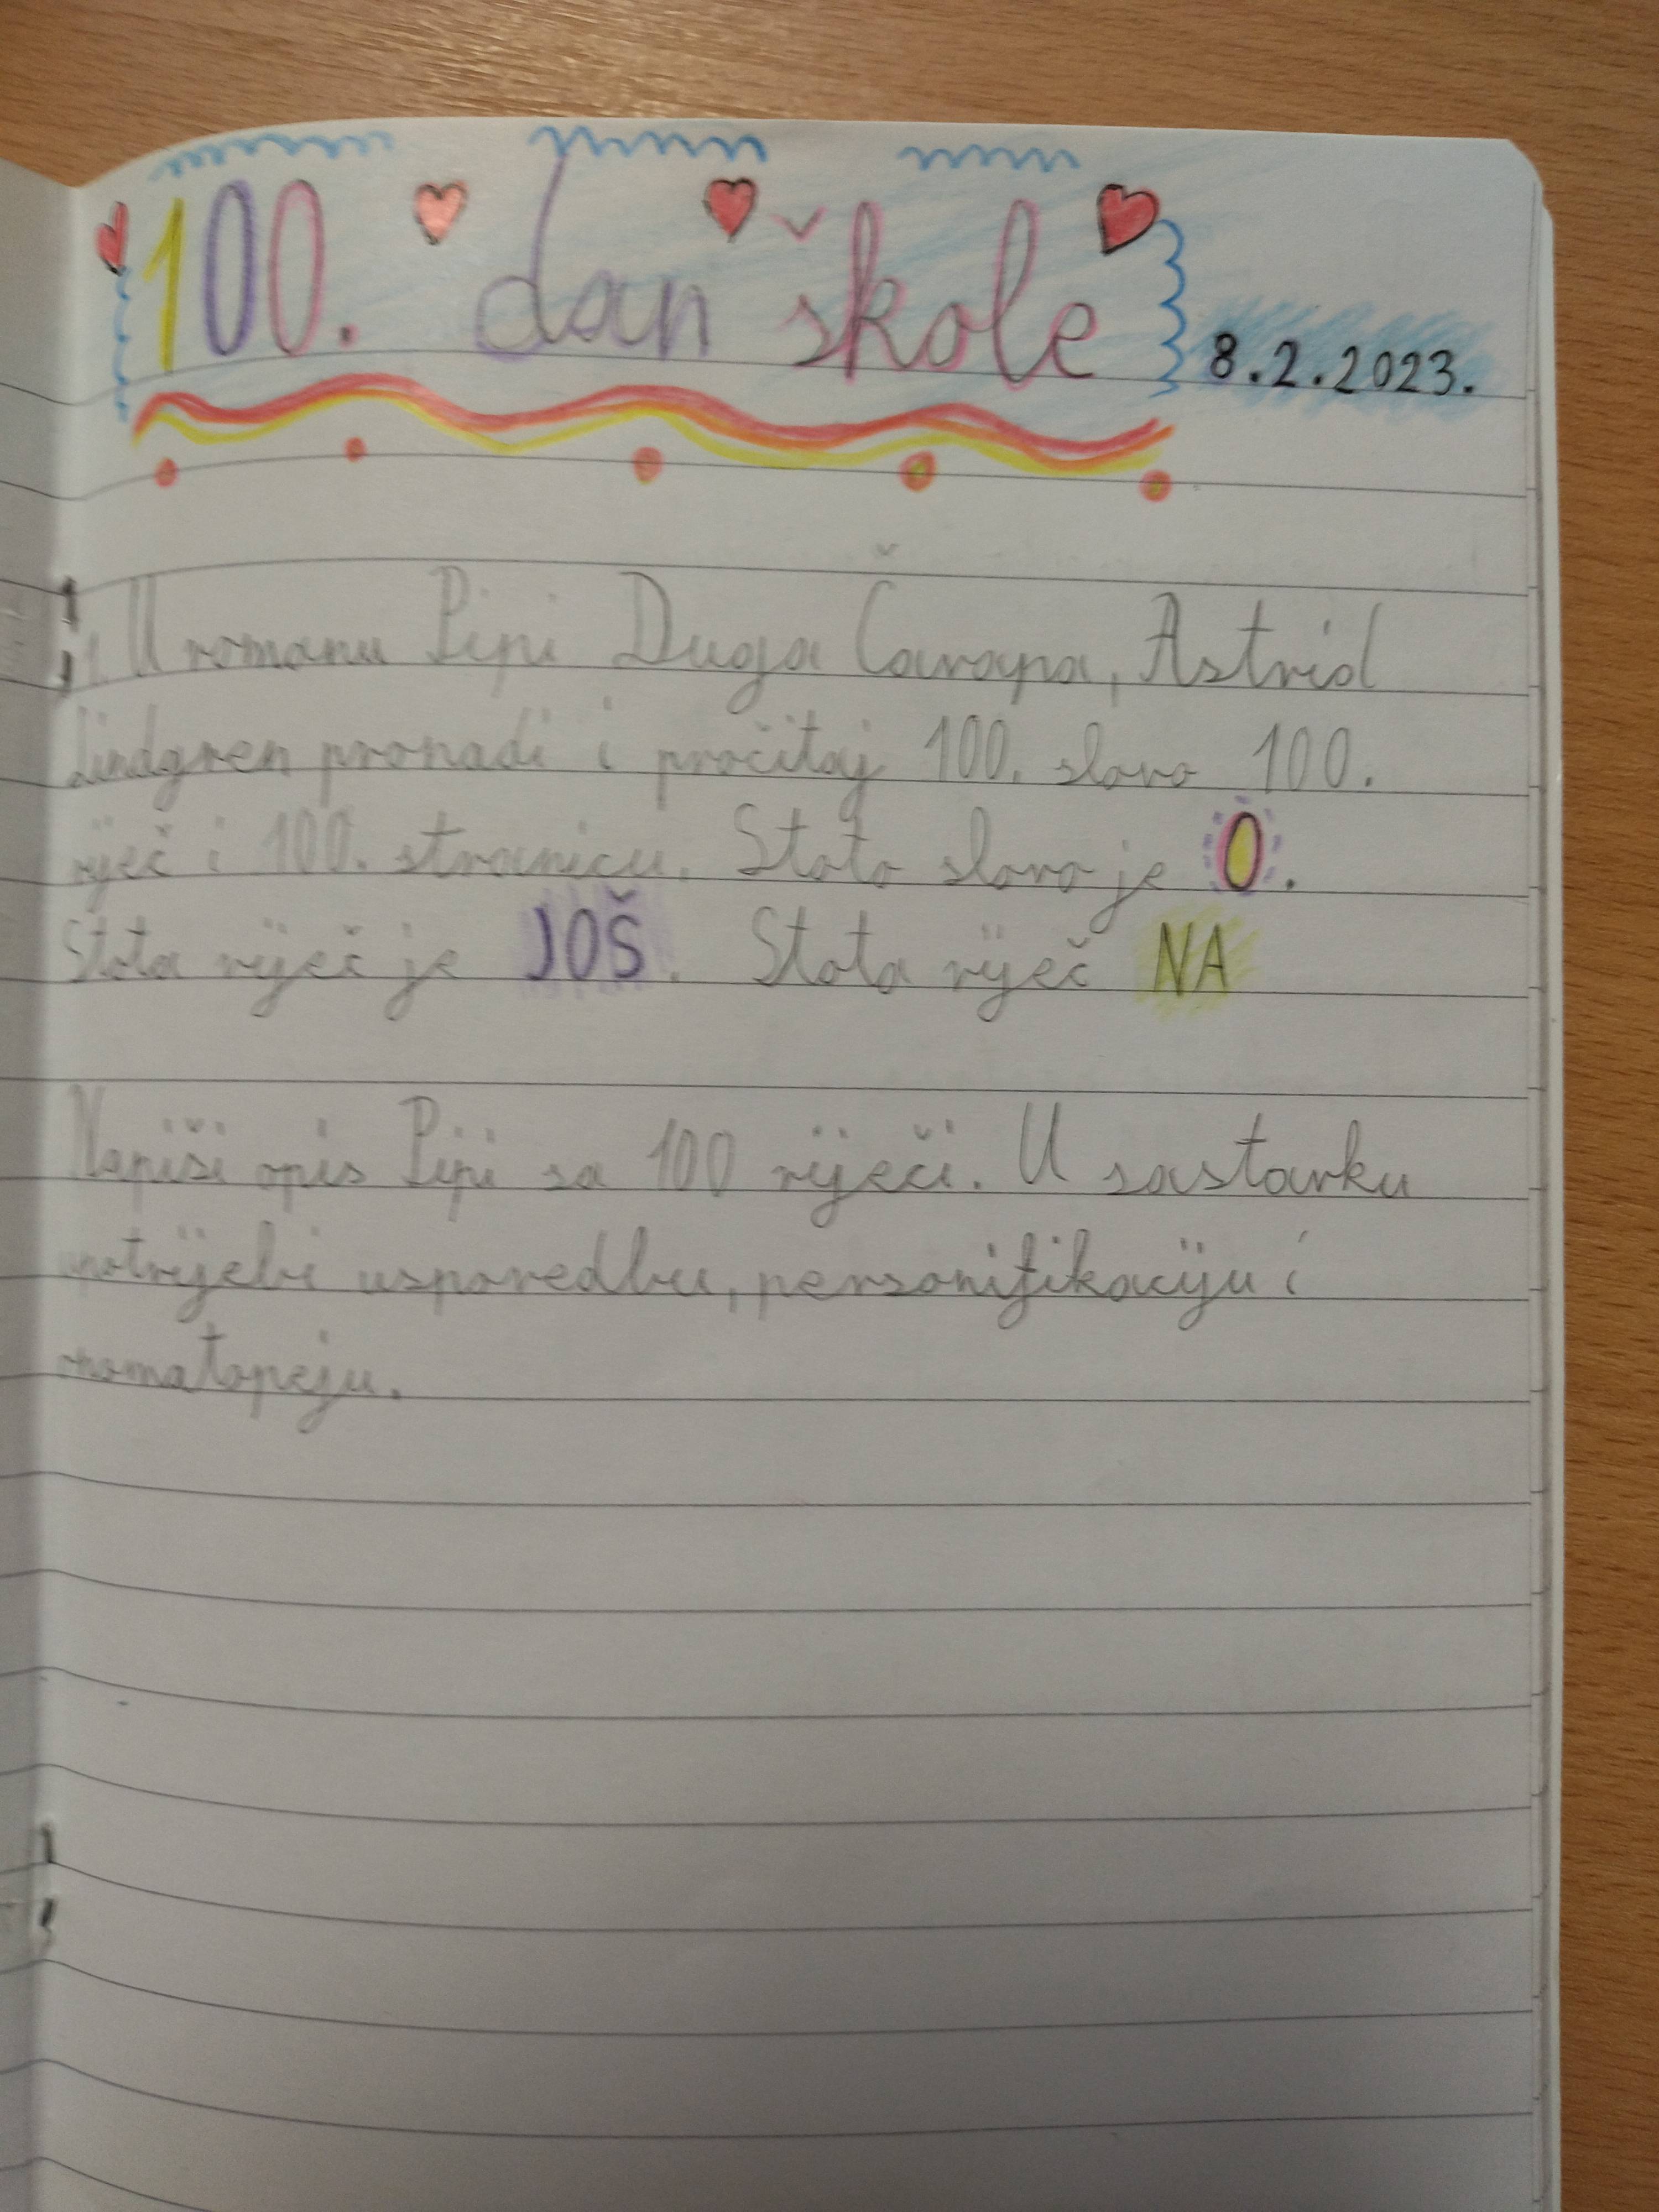 100. dan škole 8.2.2023.
1. U romanu Pipi Duga Čarapa, Astrid
Lindgren pronađi i pročitaj 100. slovo 100.
riječ i 100. stranicu. Stoto slovo je O.
Stota riječ je JOŠ. Stota riječ NA
Napiši opis Pipi sa 100 riječi. U sastavku
upotrijebi usporedbu, personifikaciju i
onomatopeju.